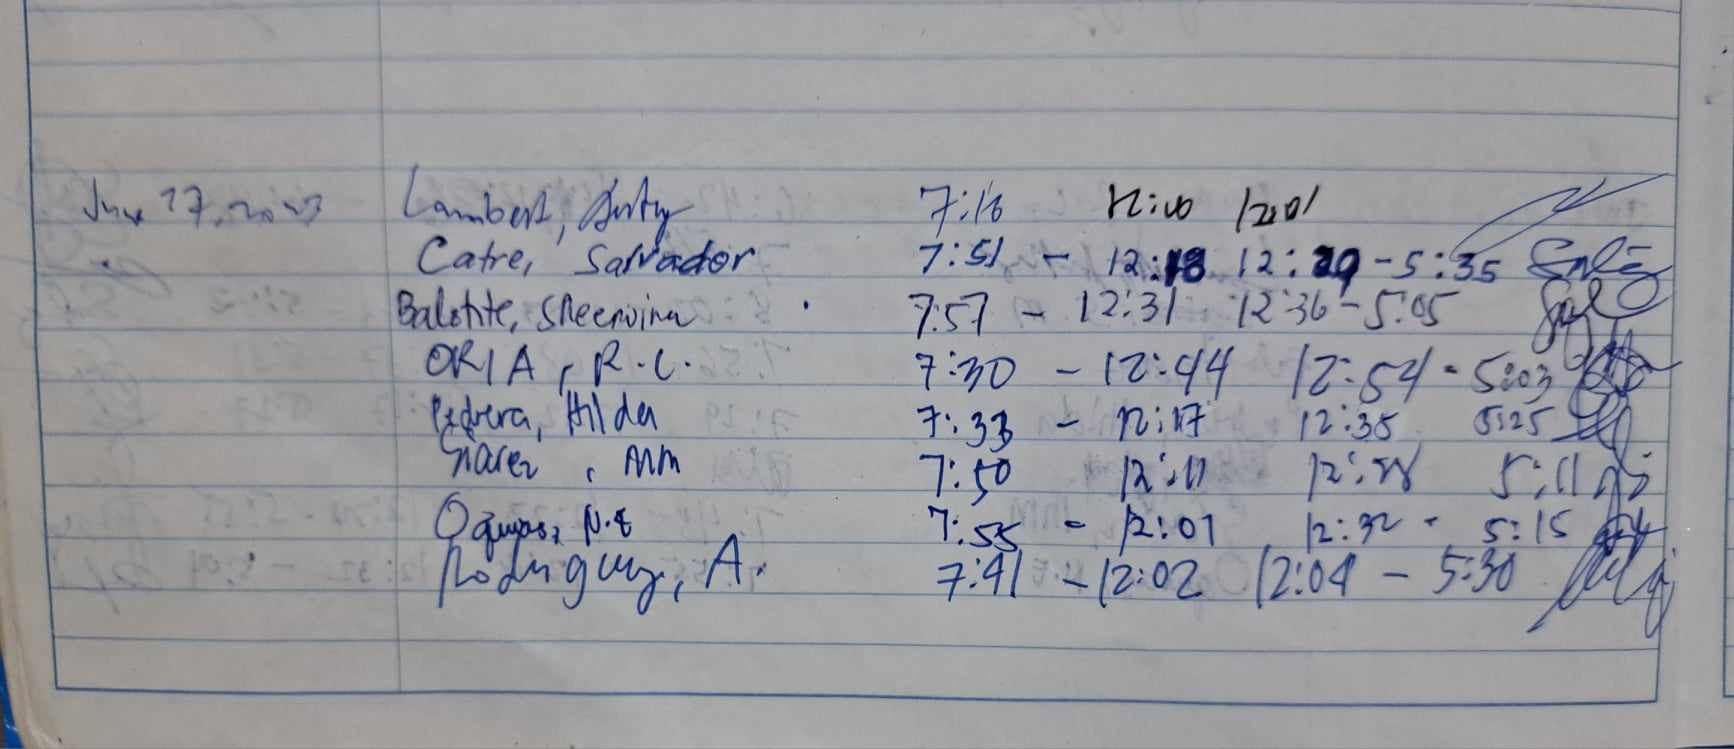 June 27, 2023 Lambert, 7:18 12:00 12:01
Catre, Salvador 7:51 - 12:18 12:29 - 5:35
Balotite, Sheervina 7:57 - 12:31 12:36 - 5:05
ORIA, R.C. 7:30 - 12:44 12:54 - 5:03
Pedrera, Hilda 7:33 - 12:17 12:35 5:25
MM 7:50 12:11 12:28 5:11
N.E 7:55 - 12:01 12:32 - 5:15
Rodriguez, A. 7:41 - 12:02 12:04 - 5:30